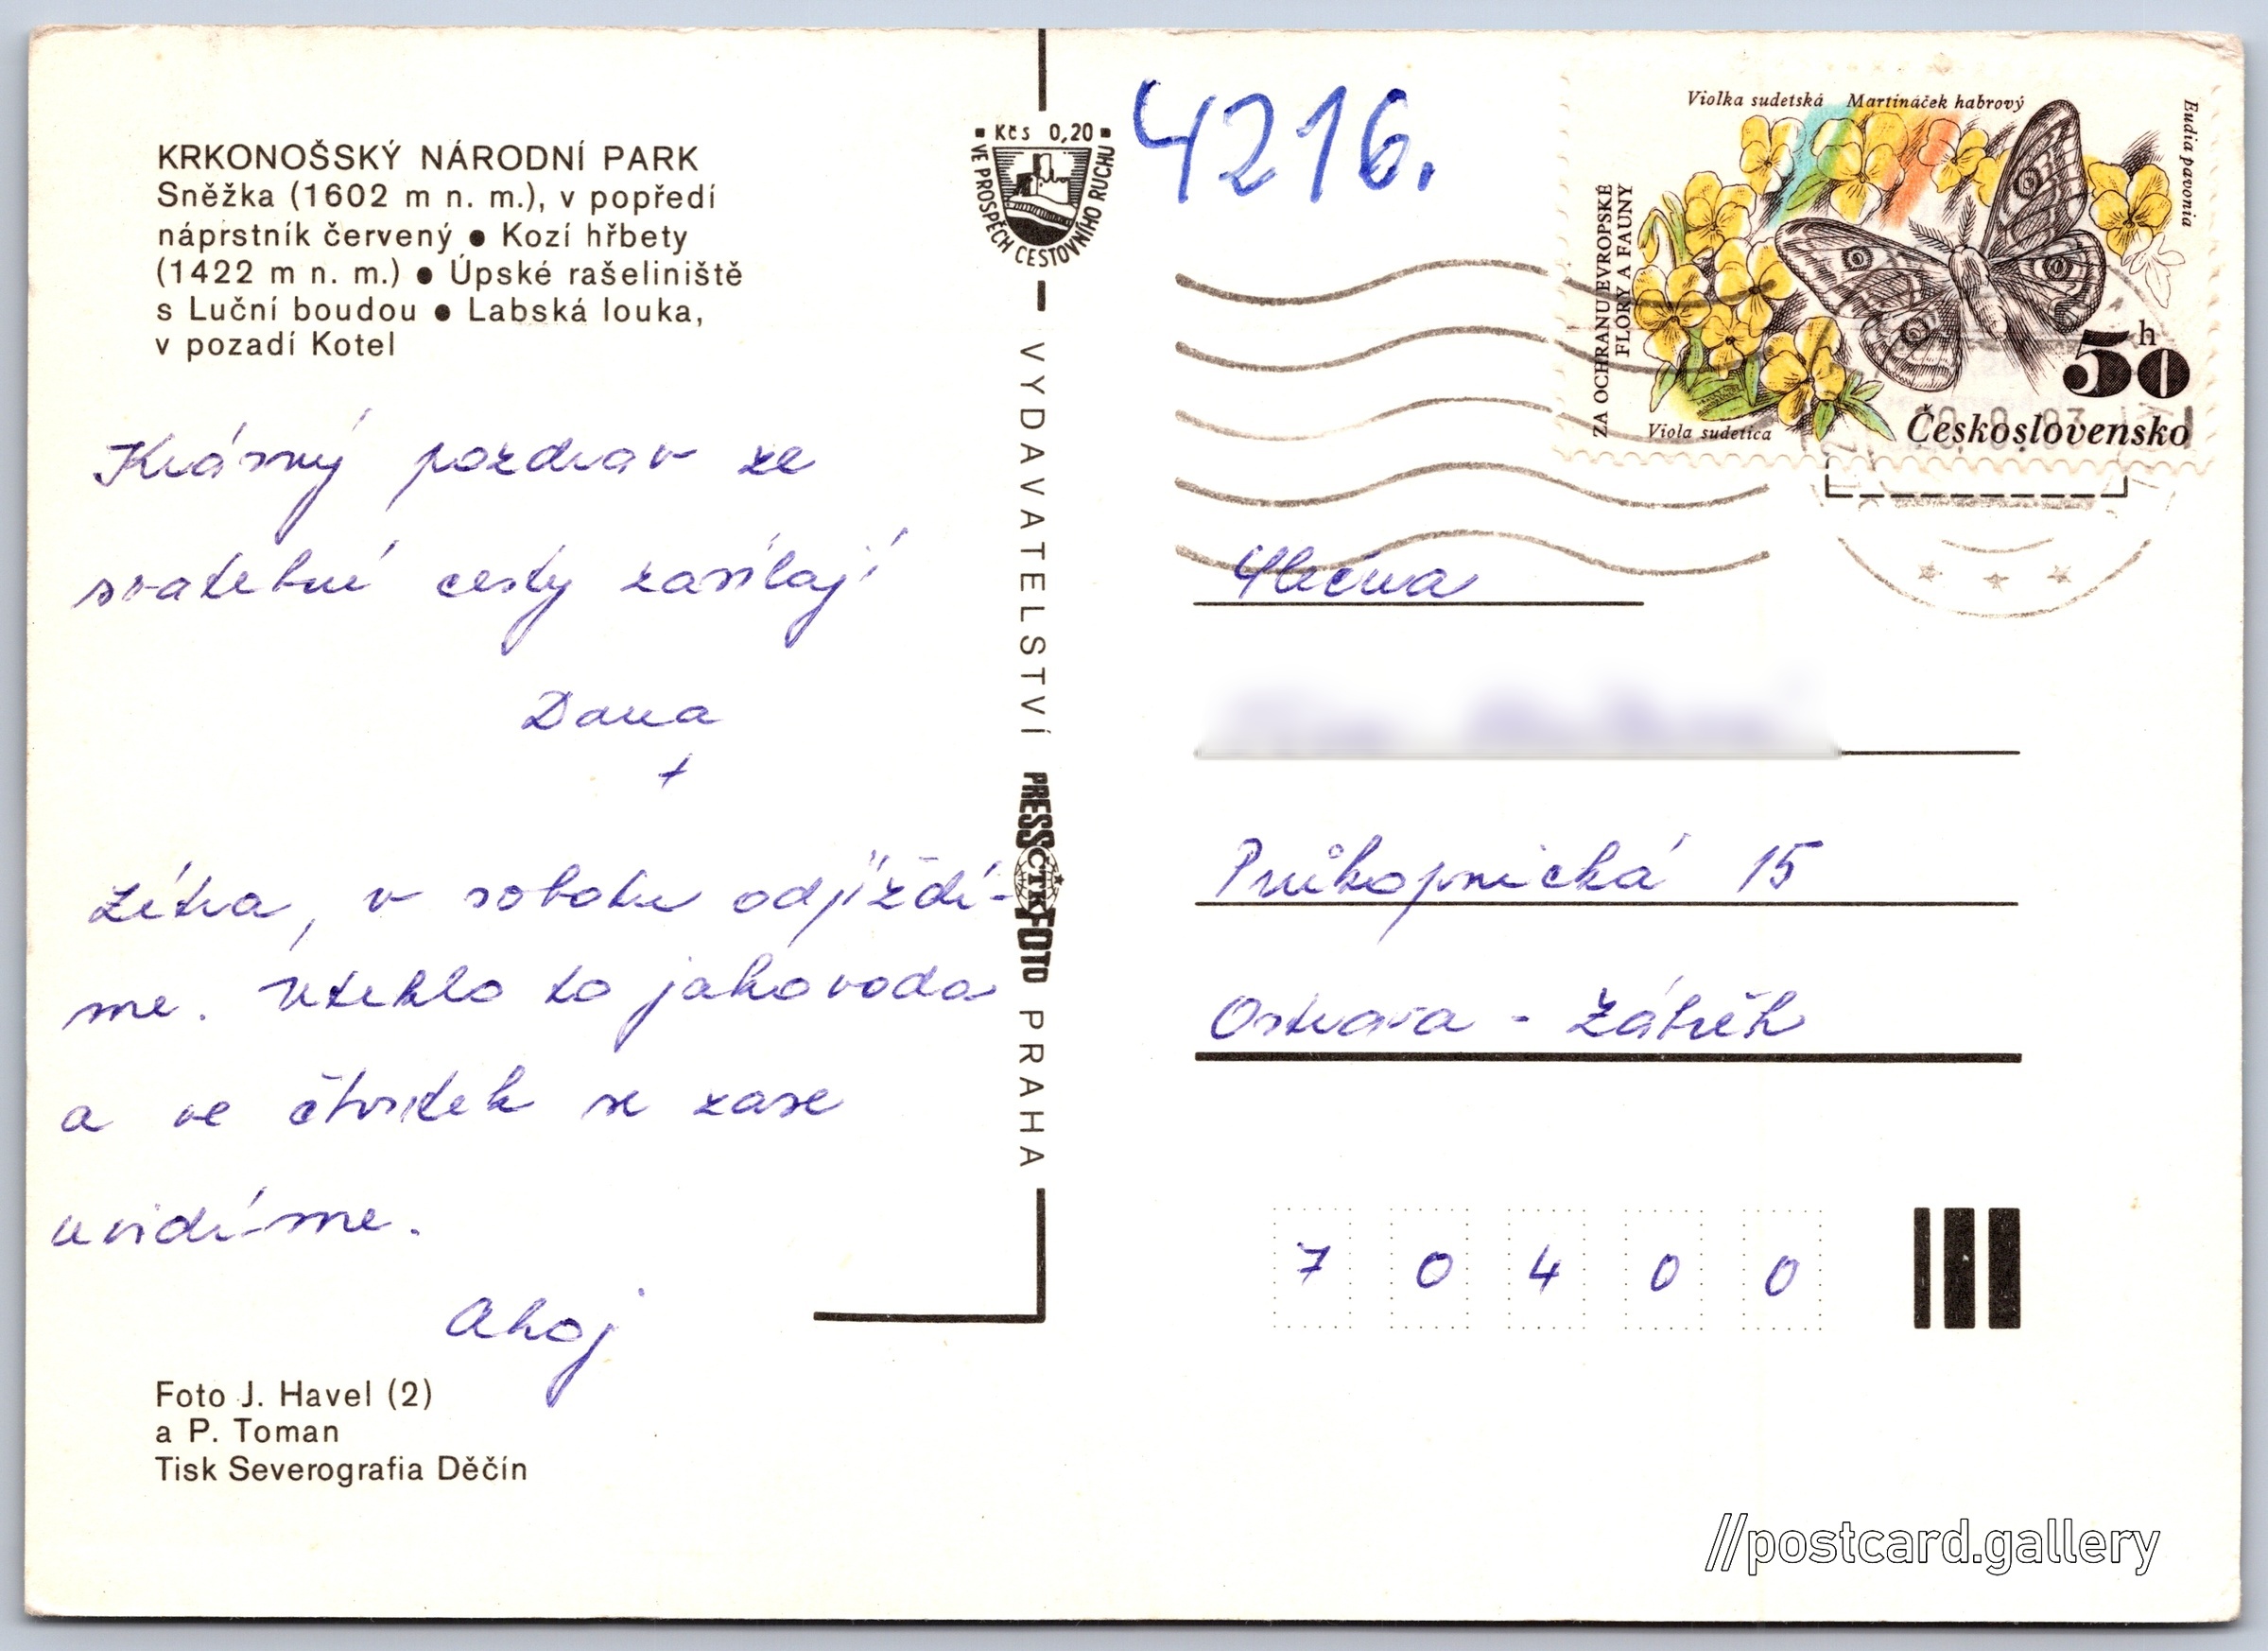 KRKONOŠSKÝ NÁRODNÍ PARK
Sněžka (1602 m n. m.), v popředí
náprstník červený ● Kozí hřbety
(1422 m n. m.) ● Úpské rašeliniště
s Luční boudou ● Labská louka,
v pozadí Kotel
Krásný pozdrav ze
svatební cesty zasílají
Dana
+
Zítra, v sobotu odjíždí-
me. Uteklo to jako voda
a ve čtvrtek se zase
uvidíme.
Ahoj
Foto J. Havel (2)
a P. Toman
Tisk Severografia Děčín
Kčs 0,20
VE PROSPĚCH CESTOVNÍHO RUCHU
VYDAVATELSTVÍ PRESSFOTO PRAHA
ČTK
4216.
Violka sudetská Martináček habrový
Eudia pavonia
ZA OCHRANU EVROPSKÉ
FLÓRY A FAUNY
Viola sudetica
50 h
Československo
Slečna
Průkopnická 15
Ostrava - Zábřeh
7 0 4 0 0
//postcard.gallery